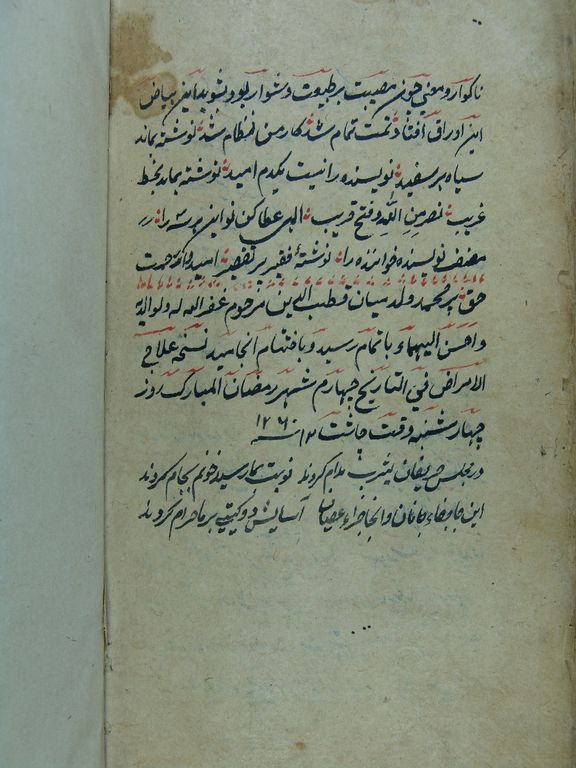 ناکوار و معنی چون مصیبت بر طبیعت دشوار بود و نشوید این بیاض
این اوراق افتاد تمت تمام شد کار من نظام شد نوشته بماند
سیاه بر سفید نویسنده را نیست یکدم امید نوشته بماند بخط
غریب نصر من الله و فتح قریب الهی عطا کن تو این هر سه را
مصنف نویسنده خواننده را نوشتهٔ فقیر پر تقصیر امیدوار رحمت
حق پیر محمد ولد میان قطب الدین مرحوم غفر الله له ولوالدیه
واحسن الیهما باتمام رسید و باختتام انجامید نسخه علاج
الامراض فی التاریخ چهارم شهر رمضان المبارک روز
چهارشنبه وقت چاشت سنه ۱۲۶۰
در مجلس حریفان شرب مدام کردند نوبت بما رسید خونم بجام کردند
این جا جفاء جانان وانجا جزاء عصیان آسایش دو گیتی بر ما حرام کردند